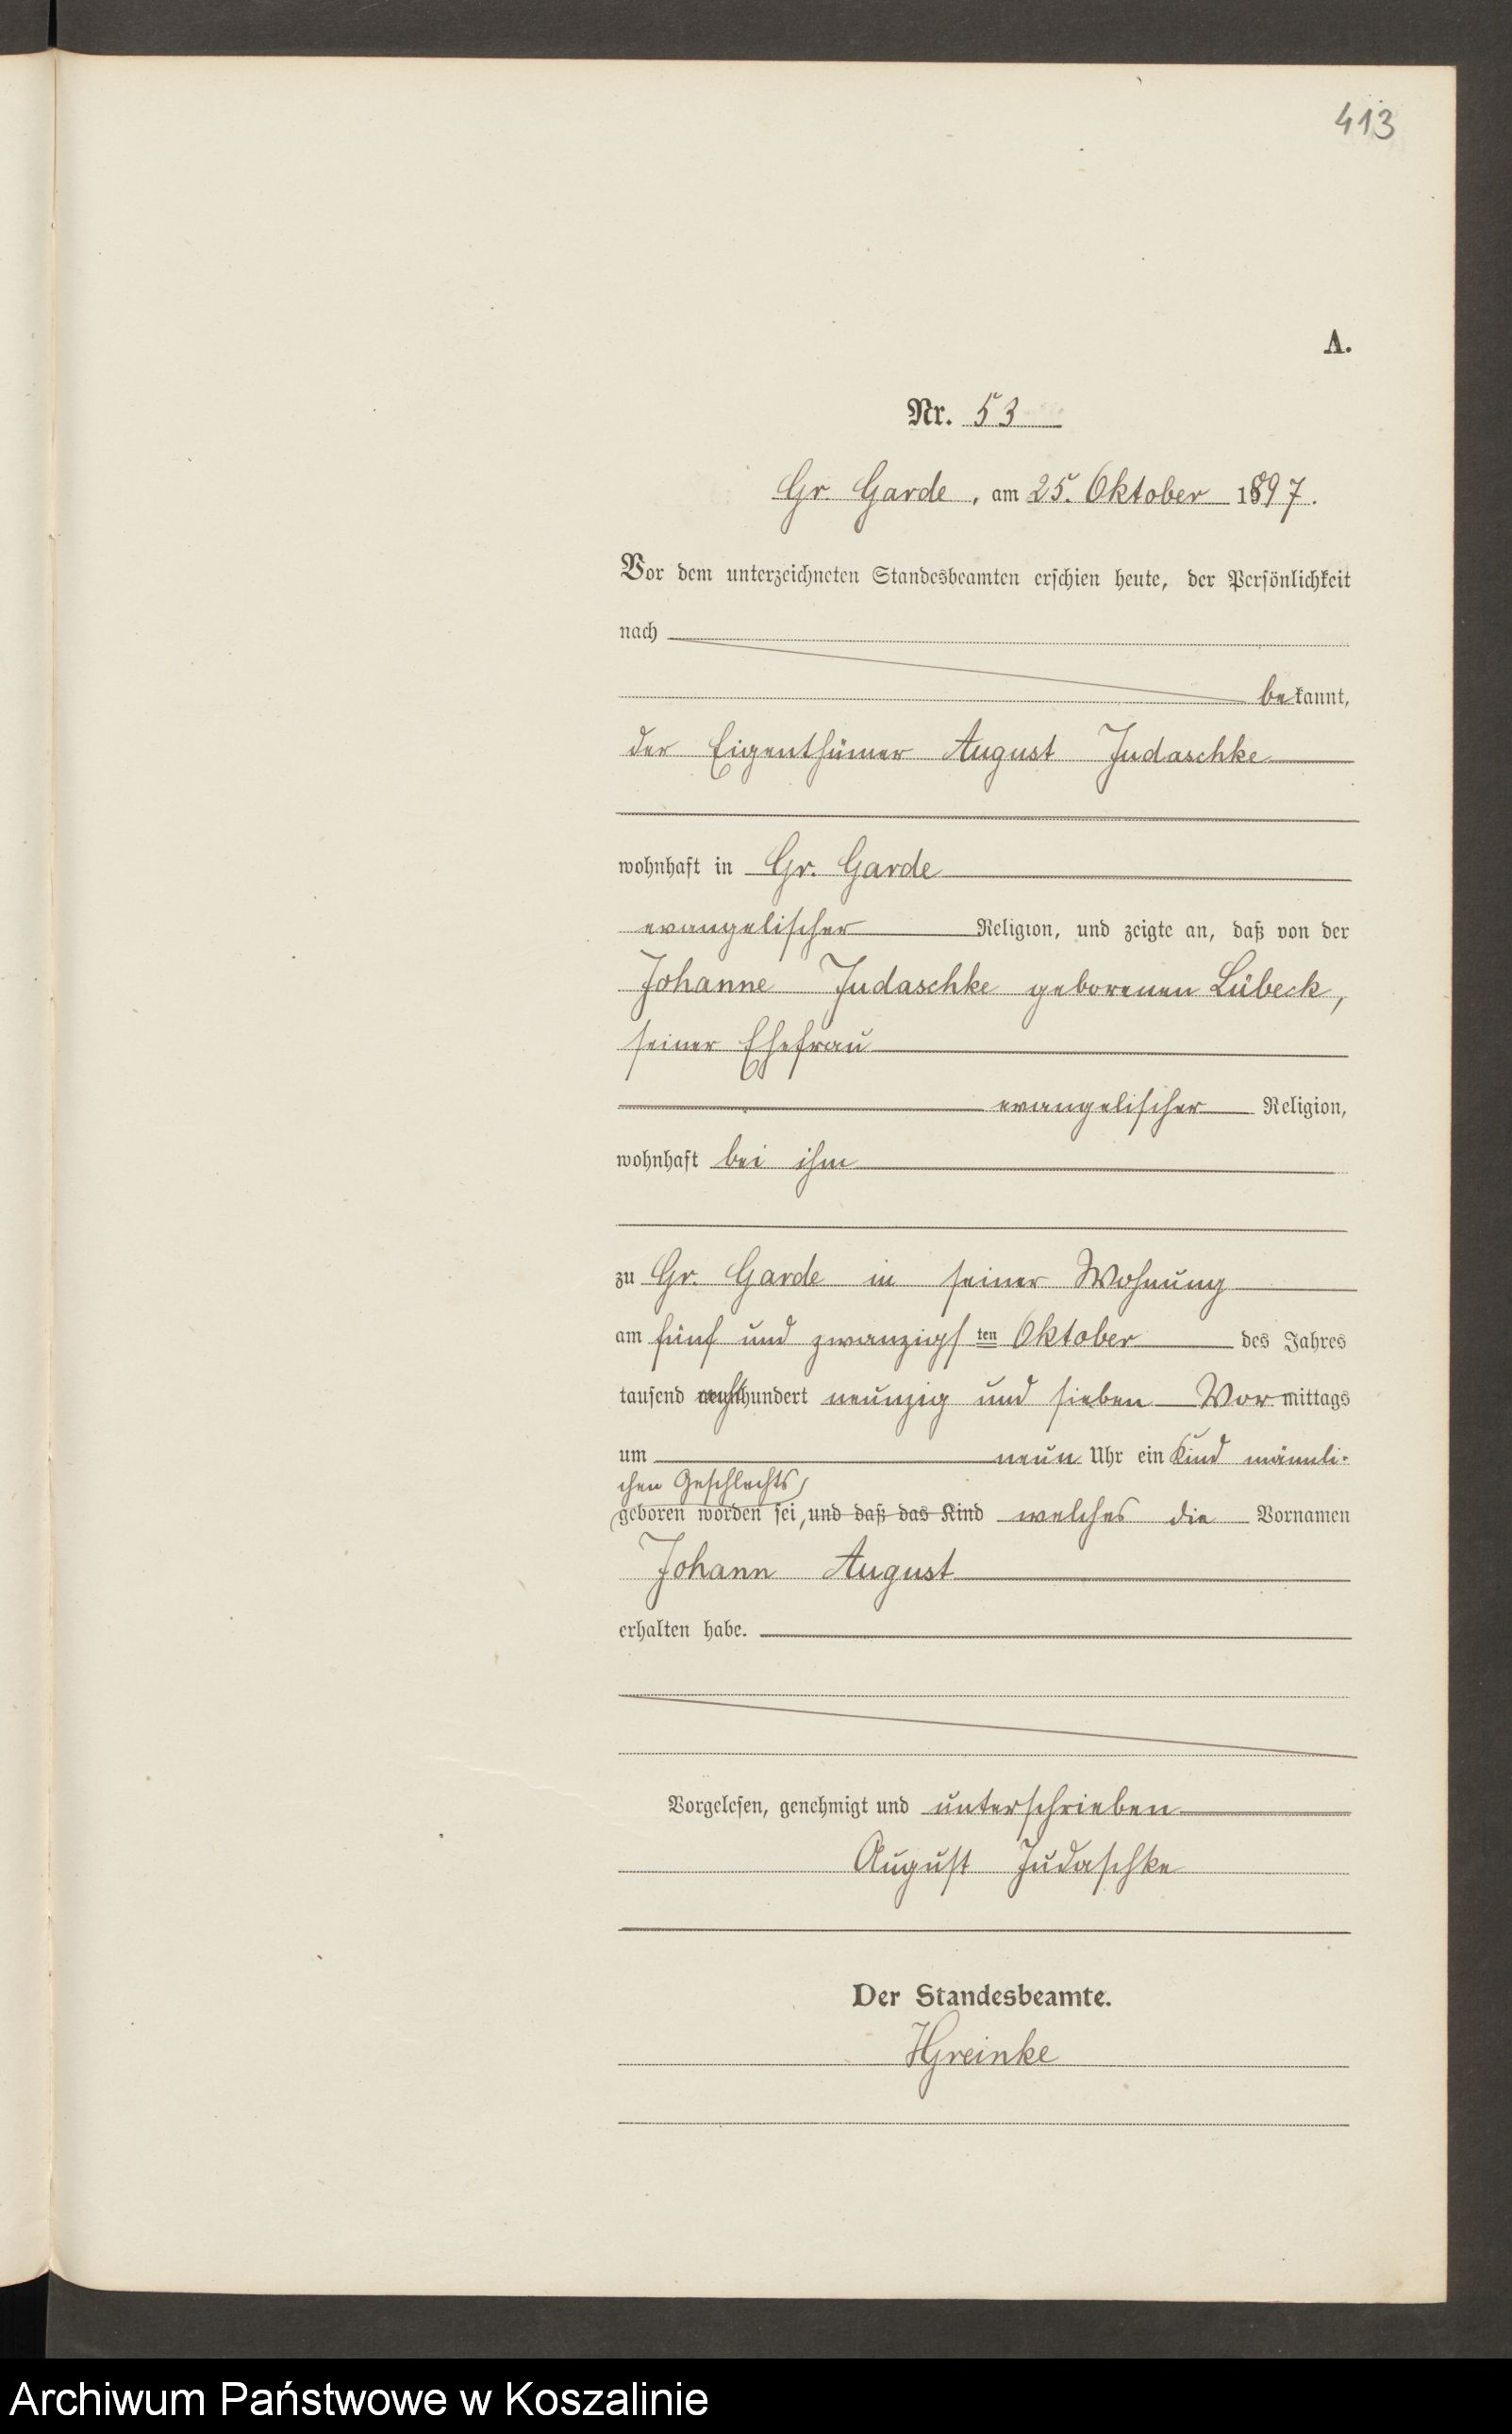 413
A.
Nr. 53
Gr. Garde, am 25. Oktober 1897.
Vor dem unterzeichneten Standesbeamten erschien heute, der Persönlichkeit
nach
bekannt,
der Eigenthümer August Judaschke
wohnhaft in Gr. Garde
evangelischer Religion, und zeigte an, daß von der
Johanne Judaschke geborenen Lübeck,
seiner Ehefrau
evangelischer Religion,
wohnhaft bei ihm
zu Gr. Garde in seiner Wohnung
am fünf und zwanzigsten Oktober des Jahres
tausend achthundert neunzig und sieben Vormittags
um neun Uhr ein Kind männli-
chen Geschlechts
geboren worden sei, und daß das Kind welches die Vornamen
Johann August
erhalten habe.
Vorgelesen, genehmigt und unterschrieben
August Judaschke
Der Standesbeamte.
HGreinke
Archiwum Państwowe w Koszalinie